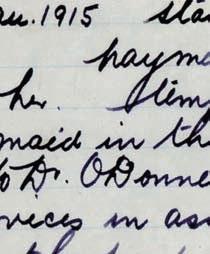 au. 1915 sta
payme
her. Item
maid in th
to Dr. O'Donne
vices in ass